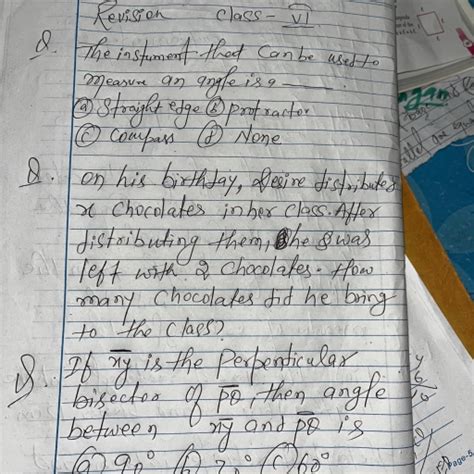 Revision class - VI
Q. The instument that can be used to
measure an angle is a ______.
(a) Straight edge (b) protractor
(c) Compass (d) None
Q. on his birthday, distributes
x chocolates in her class. After
distributing them, he was
left with 2 chocolates. How
many chocolates did he bring
to the class?
If xy is the Perpenticular
bisector of PQ, then angle
between xy and PQ is
(a) 90° (b) (c) 60°